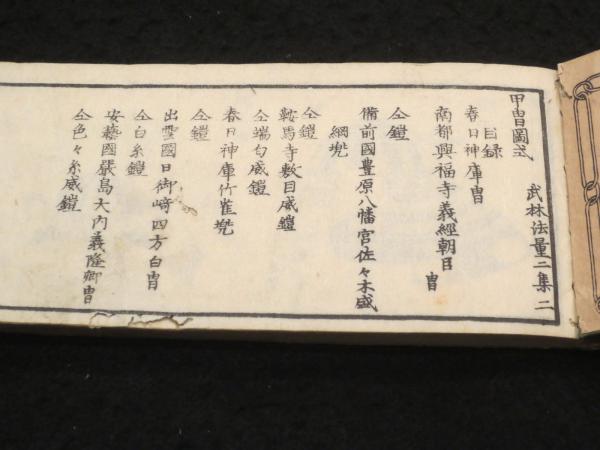 甲冑圖式
武林法量二集 二
目録
春日神庫冑
南都興福寺義經朝臣冑
仝鎧
備前國豊原八幡宮佐々木盛
綱兠
仝鎧
鞍馬寺敷目威鎧
仝端匂威鎧
春日神庫竹雀兠
仝鎧
出雲國日御﨑四方白冑
仝白糸鎧
安藝國嚴島大内義隆卿冑
仝色々糸威鎧